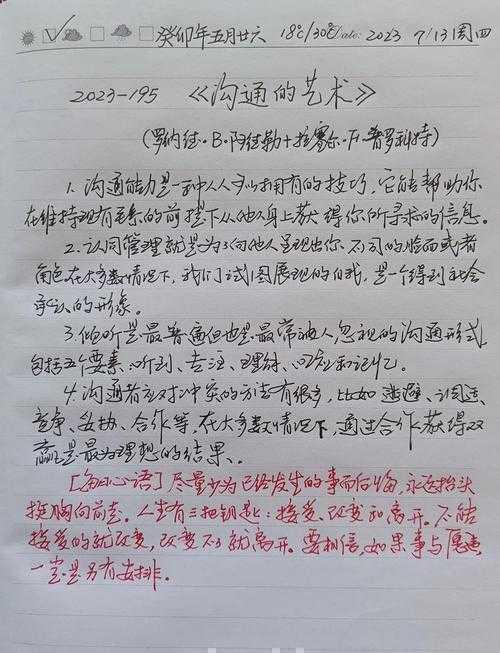 癸卯年五月廿六 18℃/30℃ Date: 2023 7/13 周四
2023-195 《沟通的艺术》
(罗纳德·B·阿德勒+拉塞尔·F·普罗科特)
1. 沟通能力是一种人人可以拥有的技巧,它能帮助你
在维持现有关系的前提下从他人身上获得你所寻求的信息。
2. 认同管理就是为了向他人呈现出你不同的脸面或者
角色,在大多数情况下,我们试图展现的自我,是一个得到社会
承认的形象。
3. 倾听是最普通但也是最常被人忽视的沟通形式,
包括五个要素:听到、专注、理解、回应和记忆。
4. 沟通者应对冲突的方法有很多,比如逃避、调适、
竞争、妥协、合作等,在大多数情况下,通过合作获得双
赢是最为理想的结果。
[每日心语] 尽量少为已经发生的事而后悔,永远抬头
挺胸向前走。人生有三把钥匙:接受、改变和离开。不能
接受的就改变,改变不了就离开。要相信,如果事与愿违,
一定是另有安排。